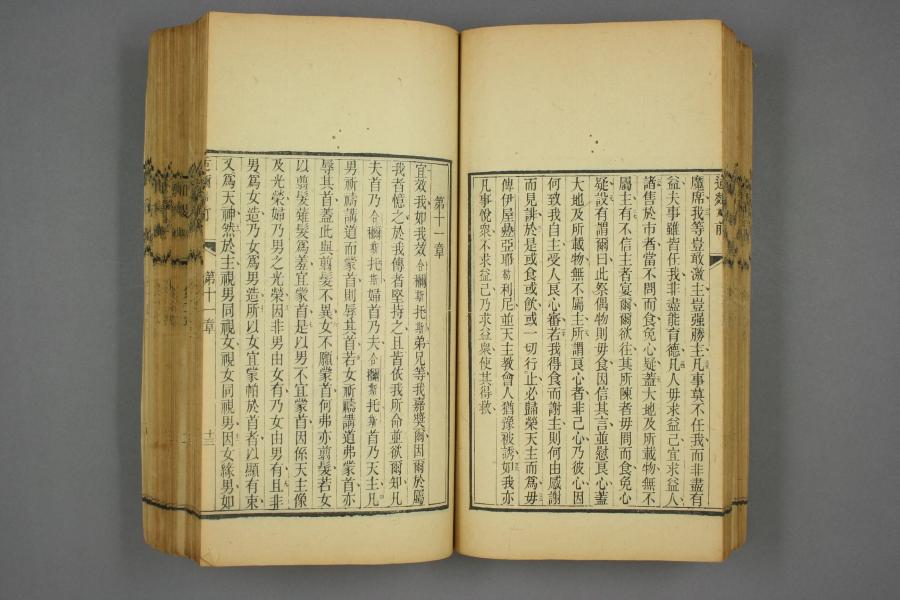 魔席我等豈敢激主豈强勝主凡事莫不任我而非盡有
益大事雖皆任我非盡能育德凡人毋求益己宜求益人
諸售於市者當不問而食免心疑蓋大地及所載物無不
屬主有不信主者宴爾爾欲往其所陳者毋問而食免心
疑設有謂爾曰此祭偶物則毋食因信其言並慰良心蓋
大地及所載物無不屬主所謂良心者非己心乃彼心因
何致我自主受人良心審若我得食而謝主則何由感謝
而見誹於是或食或飲或一切行止必歸榮天主而爲毋
傳伊屋疊亞耶勒利尼並天主教會人猶豫被誘如我亦
凡事悅衆不求益己乃求益衆使其得救
第十一章
宜效我如我效合彌斯托斯弟兄等我嘉獎爾因爾於屬
我者憶之於我傳者堅持之且皆依我所命並欲爾知凡
夫首乃合彌斯托斯婦首乃夫合彌斯托斯首乃天主凡
男祈禱講道而蒙首則辱其首若女祈禱講道弗蒙首亦
辱其首蓋此與翦髮不異女不願蒙首何弗亦翦髮若女
以翦髮薙髮爲羞宜蒙首是以男不宜蒙首因係天主像
及光榮婦乃男之光榮因非男由女有乃女由男有且非
男爲女造乃女爲男造所以女宜蒙帕於首者以顯有束
又爲天神然於主視男同視女視女同視男因女緣男如
第十一章